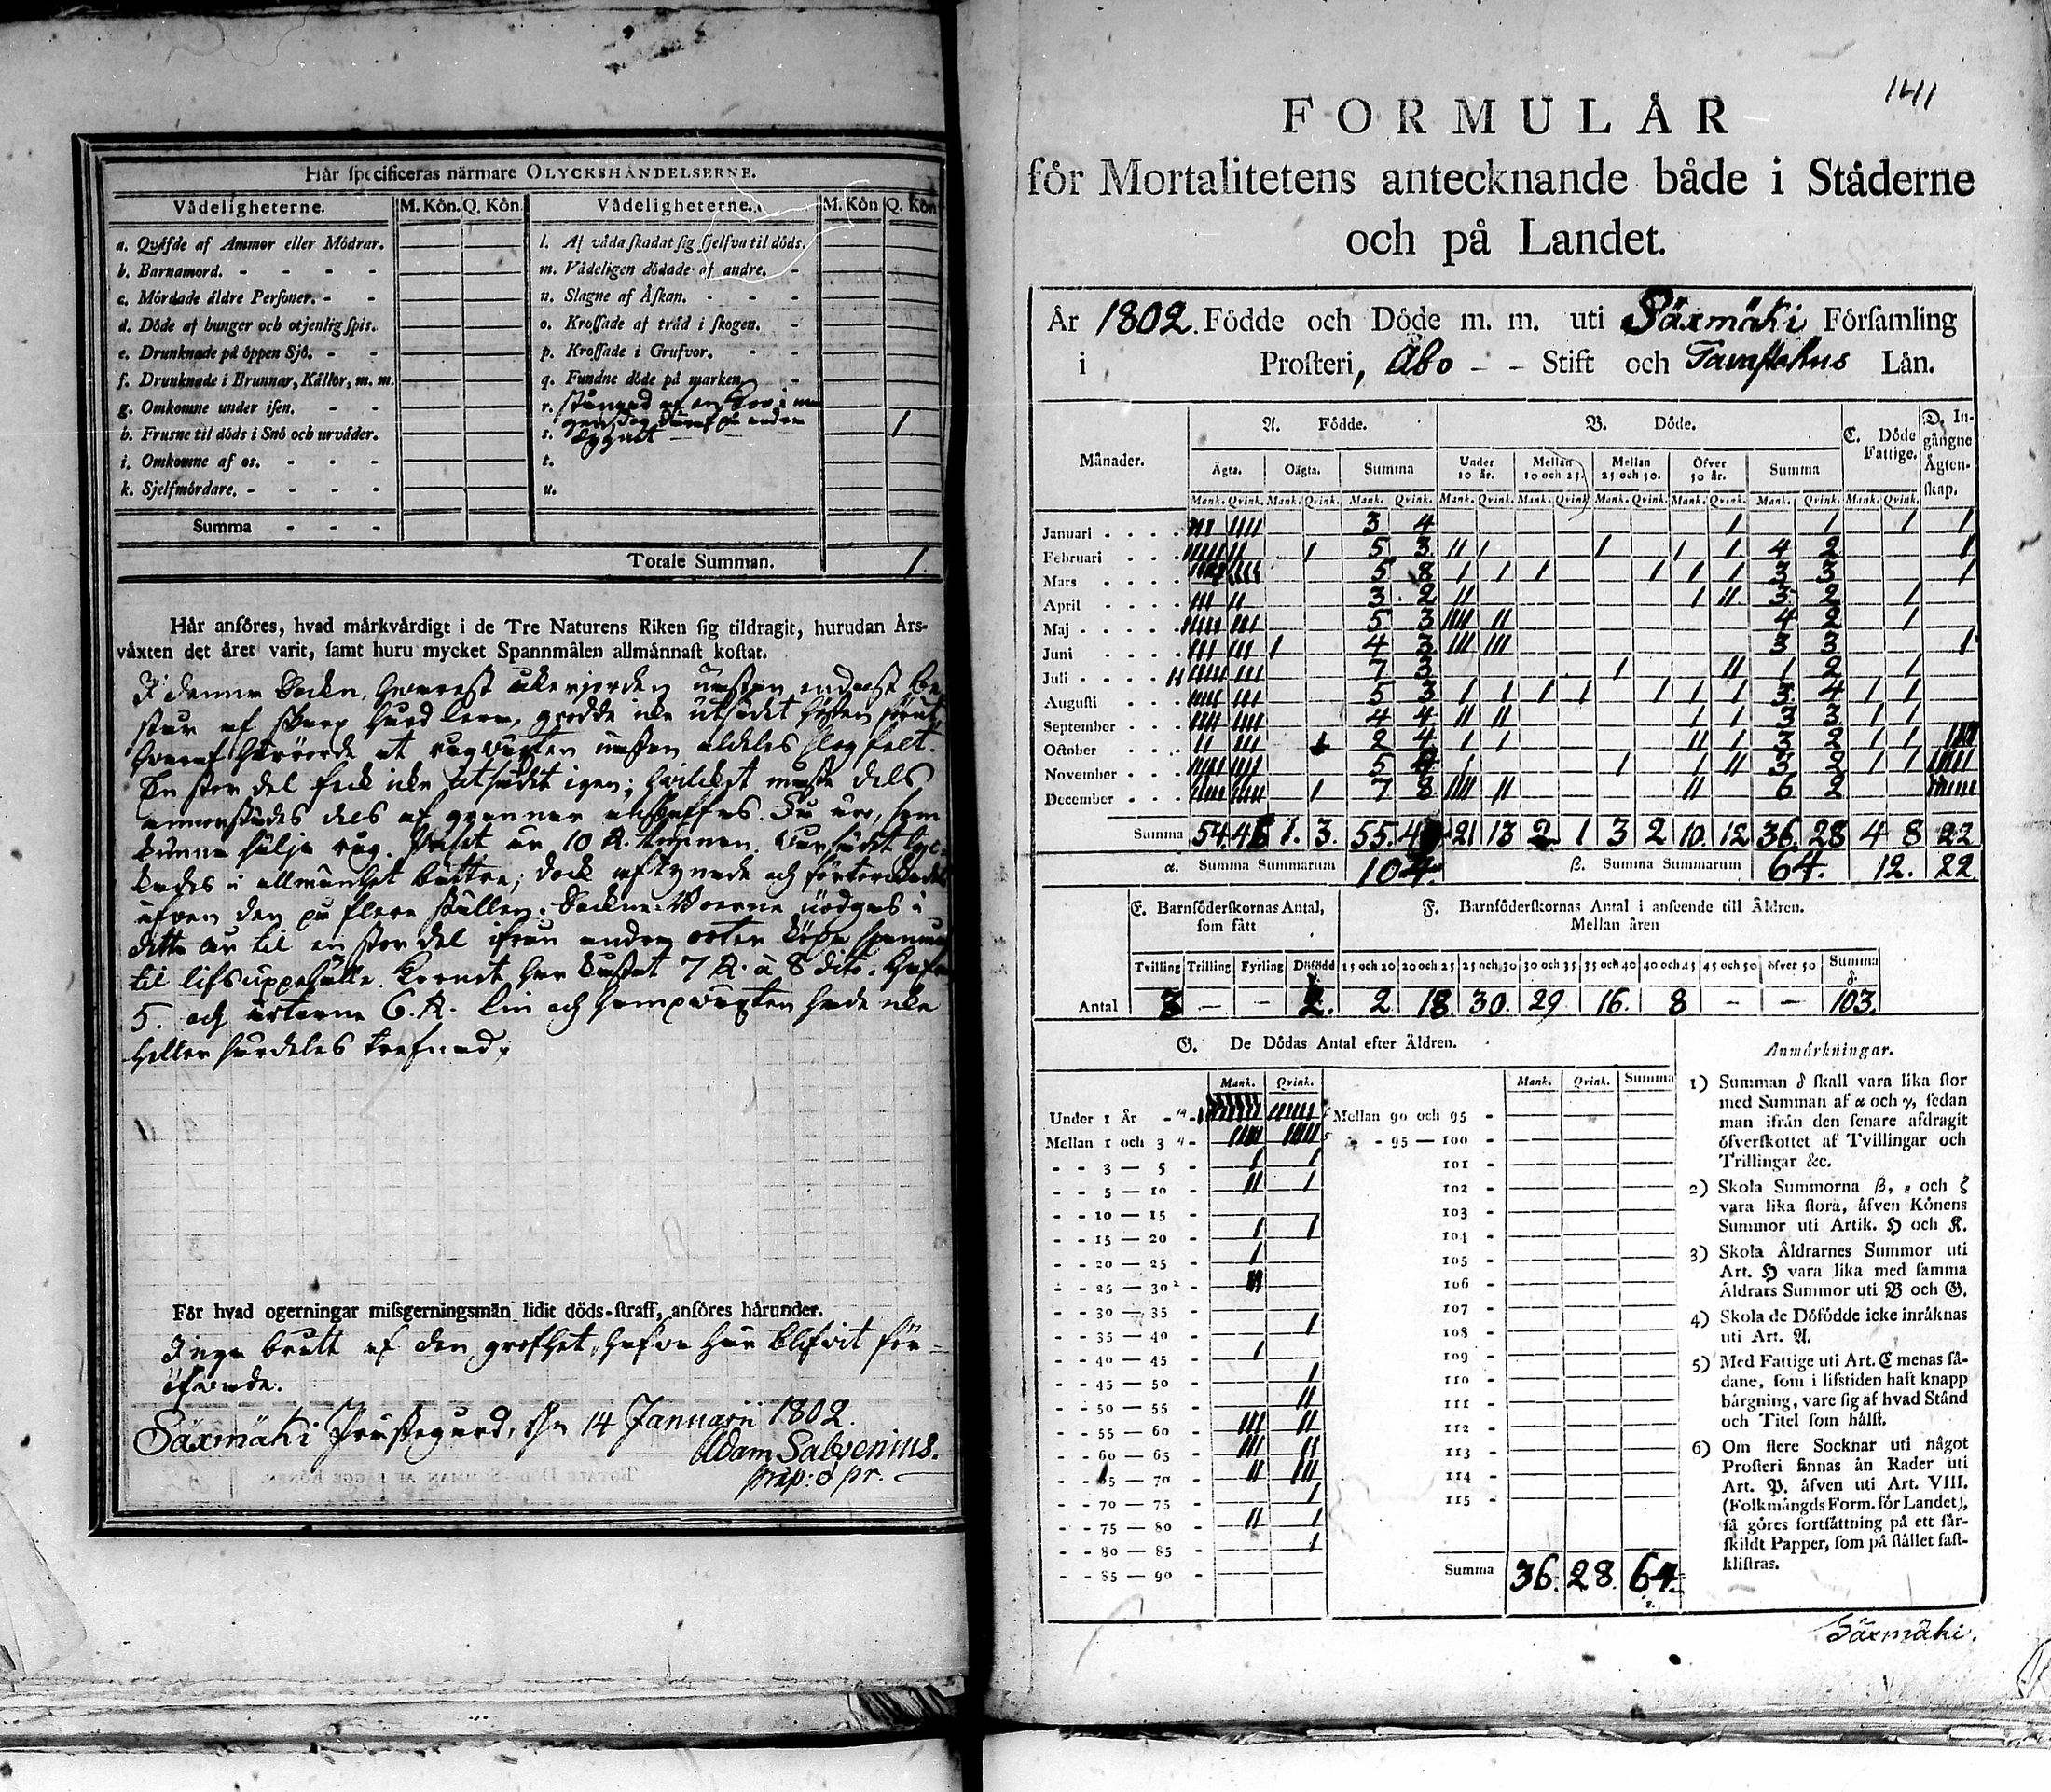 Hår specificeras närmare OLYCKSHÅNDELSERNE.
Vådeligheterne. M. Kön. Q. Kön. Vådeligheterne. M. Kön Q. Kön
a. Qväfde af Ammor eller Mödrar. l. Af våda skadat sig sjelfva til döds.
b. Barnamord. - - - - m. Vådeligen dödade af andre. -
c. Mördade äldre Personer. - - n. Slagne af Åskan. - - -
d. Döde af hunger och otjenlig spis. o. Krossade af träd i skogen. -
e. Drunknade på öppen Sjö. - - p. Krossade i Grufvor. - -
f. Drunknade i Brunnar, Källor, m. m. q. Fundne döde på marken. -
g. Omkomne under isen. - - r. stångad af en
h. Frusne til döds i Snö och urväder. s. 1
i. Omkomne af os. - - - t.
k. Sjelfmördare. - - - - u.
Summa - - -
Totale Summan. 1.
Hår anföres, hvad märkvärdigt i de Tre Naturens Riken sig tildragit, hurudan Års-
växten det året varit, samt huru mycket Spannmålen allmännast kostat.
I denna Sockn, hvarest åkerjorden nästan endast be-
står af skarp hård lera, grodde icke utsädet hösten förut,
hvaraf härrörde at rågväxten nästan aldeles slog felt.
En stor del feck icke utsädet igen; hvilket måste dels
annorstädes dels af grannar anskaffas. Få äro, som
kunna sälja råg. Priset är 10 R. tunnan. Vårsädet lyc-
kades i allmänhet bättre; dock aftynade och förtorckade
äfven den på flere ställen. Sockne-Boerne nödgas i
detta år til en stor del ifrån andra orter köpa spanmål
til lifsuppehälle. Kornet har kostat 7 R. à 8 dito. Hafra
5. och ärterne 6. R. Lin och hampväxten hade icke
heller särdeles trefnad.
För hvad ogerningar missgerningsmän lidit döds-straff, anföres hårunder.
Inga brått af den grofhet, hafva här blifvit för-
öfvade.
Säxmäki Prästegård, den 14 Januarii 1802.
Adam Salvenius.
141
FORMULÅR
för Mortalitetens antecknande både i Städerne
och på Landet.
År 1802. Födde och Döde m. m. uti Säxmäki Församling
i Prosteri, Åbo - - Stift och Tavastehus Län.
Månader. A. Födde. B. Döde. C. Döde Fattige. D. Ingångne Ägtenskap.
Ägta. Oägta. Summa Under 10 år. Mellan 10 och 25. Mellan 25 och 50. Öfver 50 år. Summa
Mank. Qvink. Mank. Qvink. Mank. Qvink. Mank. Qvink. Mank. Qvink. Mank. Qvink. Mank. Qvink. Mank. Qvink. Mank. Qvink.
Januari . . . . III IIII 3 4 I 1 I I
Februari . . . IIIII II I 5 3 II I I I I 4 2 I
Mars . . . . 5 8 I I I I I I 3 3 I
April . . . . III II 3 2 II I II 3 2 I
Maj . . . . IIIII III 5 3 IIII II 4 2 I
Juni . . . III III I 4 3 III III 3 3 I
Juli . . . . III 7 3 I II 1 2 I
Augusti . . . IIIII III 5 3 I I I I I I I 3 4 I I
September . . . IIII IIII 4 4 II II I I 3 3 I I
October . . . II III I 2 4 I I II I 3 2 I I
November . . . IIIII IIII 5 I I I II 3 2 I I
December . . . I 7 8 IIII II II 6 2
Summa 54. 1. 3. 55. 21 13 2 1 3 2 10. 12 36. 28 4 8 22
α. Summa Summarum 104. β. Summa Summarum 64. 12. 22.
E. Barnföderskornas Antal, som fått
F. Barnföderskornas Antal i anseende till Åldren.
Mellan åren
Tvilling Trilling Fyrling Dödfödd 15 och 20 20 och 25 25 och 30 30 och 35 35 och 40 40 och 45 45 och 50 öfver 50 Summa
Antal 3 — - 2. 2 18 30. 29 16. 8 - — 103.
G. De Dödas Antal efter Åldren.
Mank. Qvink. Mank. Qvink. Summa
Under 1 År Mellan 90 och 95 -
Mellan 1 och 3 - 95 — 100 -
- - 3 — 5 - I I 101 -
- - 5 — 10 - II I 102 -
- - 10 — 15 - 103 -
- - 15 — 20 - I I 104 -
- - 20 — 25 - I 105 -
- - 25 — 30 106 -
- - 30 — 35 - 107 -
- - 35 — 40 - I 108 -
- - 40 — 45 - I 109 -
- - 45 — 50 - I 110 -
- - 50 — 55 - II 111 -
- - 55 — 60 - III II 112 -
- - 60 — 65 - III II 113 -
- - 65 — 70 - II III 114 -
- - 70 — 75 - I 115 -
- - 75 — 80 - II I
- - 80 — 85 - I
- - 85 — 90 -
Summa 36. 28. 64.
Anmårkningar.
1) Summan δ skall vara lika stor
med Summan af α och γ, sedan
man ifrån den senare afdragit
öfverskottet af Tvillingar och
Trillingar &c.
2) Skola Summorna β, ε och ζ
vara lika stora, äfven Könens
Summor uti Artik. H och K.
3) Skola Åldrarnes Summor uti
Art. H vara lika med samma
Åldrars Summor uti B och G.
4) Skola de Döfödde icke inräknas
uti Art. A.
5) Med Fattige uti Art. C menas så-
dane, som i lifstiden haft knapp
bärgning, vare sig af hvad Stånd
och Titel som hälst.
6) Om flere Socknar uti något
Prosteri finnas än Rader uti
Art. P. äfven uti Art. VIII.
(Folkmängds Form. för Landet),
så göres fortsättning på ett sär-
skildt Papper, som på stället fast-
klistras.
Säxmäki.